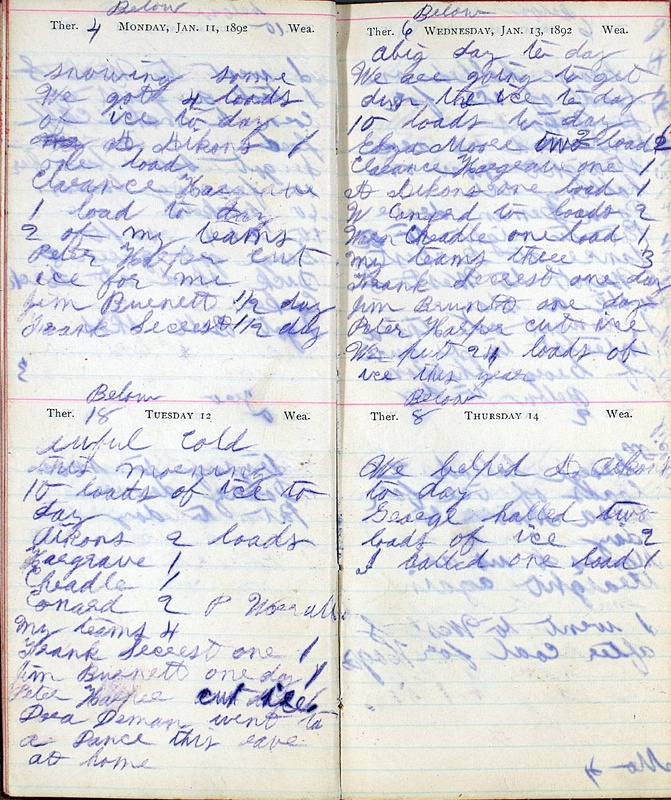 Below
Ther. 4 MONDAY, JAN. 11, 1892 Wea.
snowing some
We got 4 loads
of ice to day
D Aikons 1
one load
Clarence Hargrave
1 load to day
2 of my teams
Peter Harper cut
ice for me
Jim Burnett 1/2 day
Frank Secrest 1/2 day
Below
Ther. 18 TUESDAY 12 Wea.
awful Cold
this morning
10 loads of ice to
day
Aikons 2 loads
Hargrave 1
Cheadle 1
Conard 2 P
My teams 4
Frank Secrest one 1
Jim Burnett one day 1
Peter Harper cut ice
Dora Deman went to
a Dance this eave
at home
Below
Ther. 6 WEDNESDAY, JAN. 13, 1892 Wea.
a big day to day
We are going to get
dun the ice to day
10 loads to day
Moore two loads 2
Clarance Hargrave one 1
D Aikons one load 1
W Conard to loads 2
Cheadle one load 1
my teams three 3
Frank Secrest one day
Jim Brunett one day
Peter Harper cut ice
We put 24 loads of
ice this year
Below
Ther. 8 THURSDAY 14 Wea.
We helped D Aikons
to day
George halled two
loads of ice 2
I halled one load 1